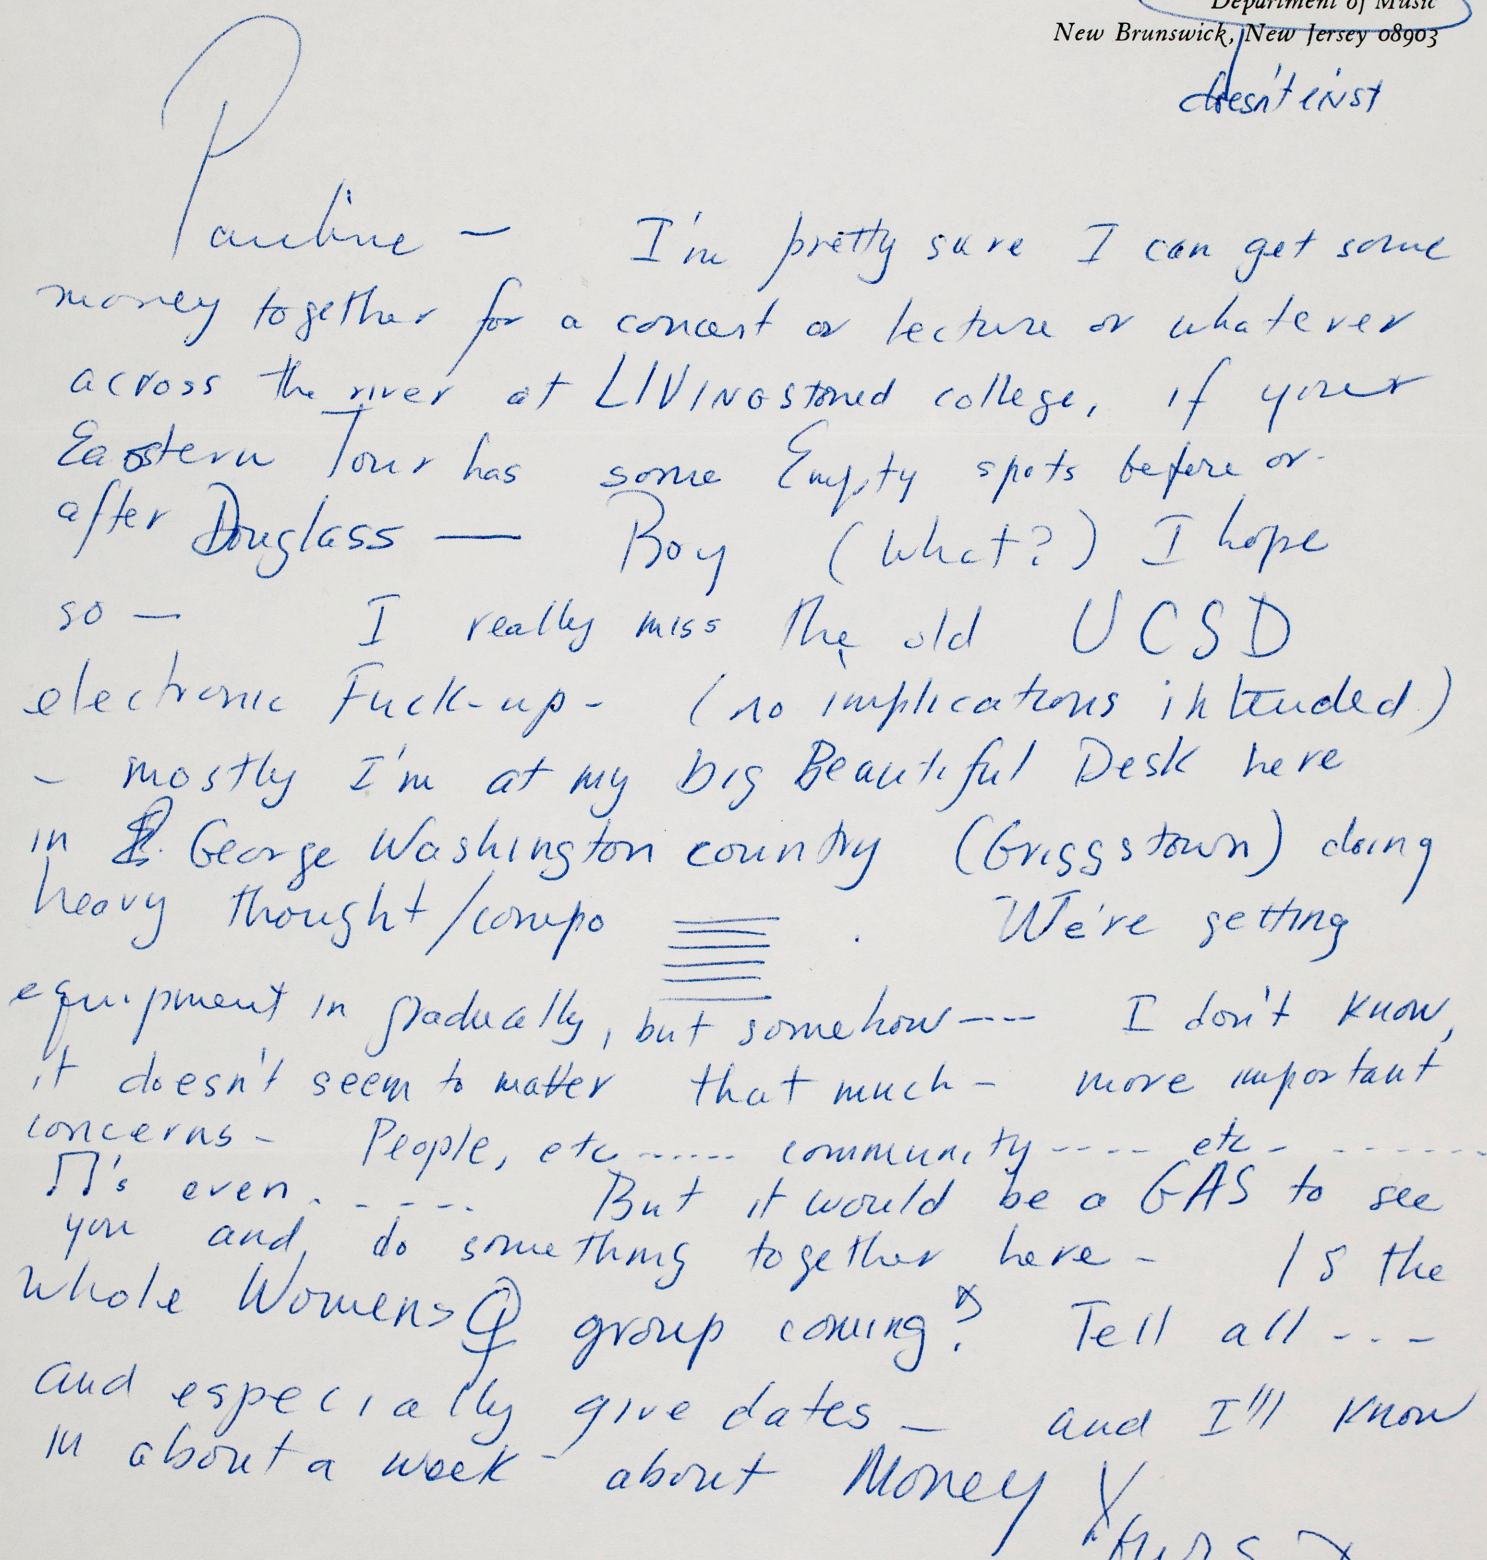 Department of Music
New Brunswick, New Jersey 08903
doesn't exist
Pauline — I'm pretty sure I can get some
money together for a concert or lecture or whatever
across the river at LIVINGstoned college, if your
Eastern Tour has some Empty spots before or
after Douglass — Boy (what?) I hope
so — I really miss the old UCSD
electronic Fuck-up - (no implications intended)
- mostly I'm at my big Beautiful Desk here
in George Washington country (Griggstown) doing
heavy thought/compo . We're getting
equipment in gradually, but somehow --- I don't know,
it doesn't seem to matter that much - more important
concerns - People, etc ...... community ---- etc - ------
It's even. - - - -. But it would be a GAS to see
you and, do something together here - Is the
whole Womens ♀ group coming? Tell all ---
and especially give dates — and I'll know
in about a week - about Money
Yours